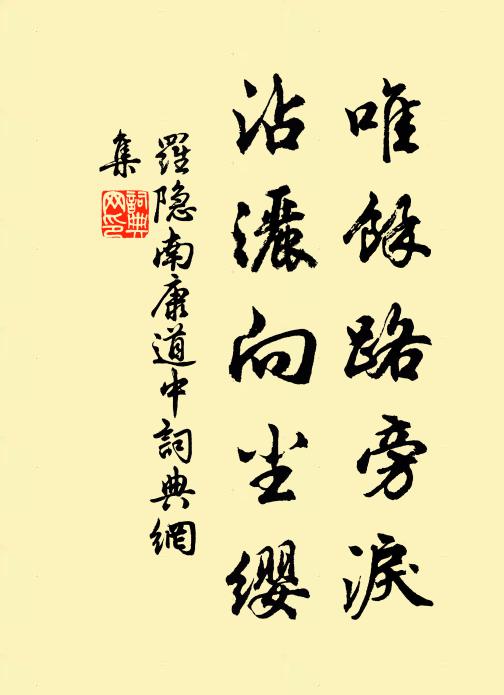 唯餘路旁淚
沾灑向尘纓
羅隐南康道中詞典網
集
詞典网印